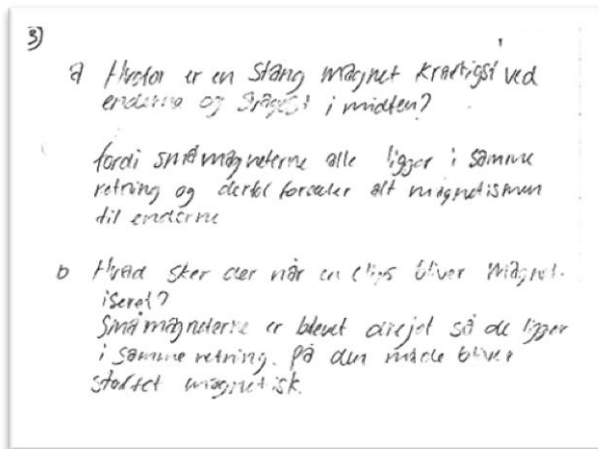 3)
a Hvorfor er en stang magnet kraftigst ved
enderne og svagest i midten?
fordi småmagneterne alle ligger i samme
retning og derfor alt magnetismen
til enderne
b Hvad sker der når en clips bliver magnet-
iseret?
Småmagneterne er blevet drejet så de ligger
i samme retning. på den måde bliver
stoffet magnetisk.